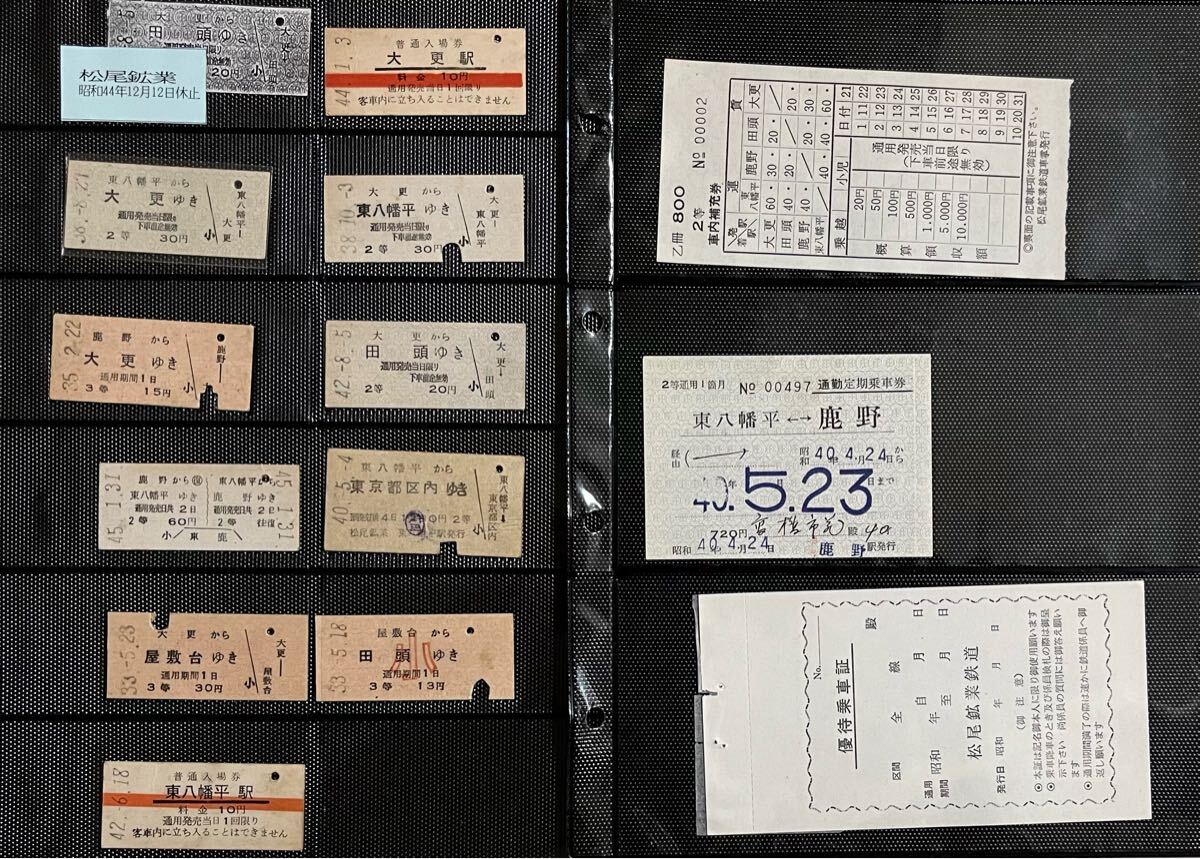 大更から
田頭ゆき
通用発売当日限り
下車前途無効
20円
小
大更―田頭
松尾鉱業
昭和44年12月12日休止
普通入場券
大更駅
料金10円
通用発売当日1回限り
客車内に立ち入ることはできません
44.1.3
東八幡平から
大更ゆき
通用発売当日限り
下車前途無効
2等 30円
小
東八幡平―大更
大更から
東八幡平ゆき
通用発売当日限り
下車前途無効
2等 30円
大更―東八幡平
鹿野から
大更ゆき
通用期間1日
3等 15円
小
鹿野―
35.2.22
大更から
田頭ゆき
通用発売当日限り
下車前途無効
2等 20円
大更―田頭
42-8.-5
鹿野から㊝
東八幡平ゆき
通用発売日共2日
2等 60円
小 東
東八幡平から
鹿野ゆき
通用発売日共2日
2等 往復
鹿
45.1.31
45.1.31
東八幡平から
東京都区内ゆき
2等
松尾鉱業 東八幡平駅発行
東八幡平―東京都区内
40.-5.-4
大更から
屋敷台ゆき
通用期間1日
3等 30円
小
大更―屋敷台
33.-5.23
屋敷台から
田頭ゆき
通用期間1日
3等 13円
小
普通入場券
東八幡平駅
料金10円
通用発売当日1回限り
客車内に立ち入ることはできません
42.6.18
乙冊 800 № 00002
2等
車内補充券
運賃
発駅
着駅
東八幡平 鹿野 田頭 大更
大更 60・ 30・ 20・
田頭 40・ 20・ 20・
鹿野 20・ 30・
東八幡平 40・ 40・ 60
乗越 小児 日付
概算領収額
20円
50円
100円
500円
1.000円
5.000円
10.000円
通用発売当日限り
(下車前途無効)
1 2 3 4 5 6 7 8 9 10
11 12 13 14 15 16 17 18 19 20
21 22 23 24 25 26 27 28 29 30 31
◎裏面の記載事項に御注意下さい。
松尾鉱業鉄道車掌発行
2等通用1箇月 № 00497 通勤定期乗車券
東八幡平←→鹿野
経由
昭和40年4月24日から
40年5.23日まで
720円
殿
昭和40年4月24日 鹿野駅発行
No.
優待乗車証
殿
区間 全線
通用期間 昭和 自 年 月 日 至 年 月 日
松尾鉱業鉄道
発行日 昭和 年 月 日
(御注意)
◉本証は記名御本人に限り御使用願います
◉乗車降車のとき及び係員検札の際は御呈示下さい 尚係員の質問には御答え願います
◉通用期間満了の際は速かに鉄道係員へ御返し願います